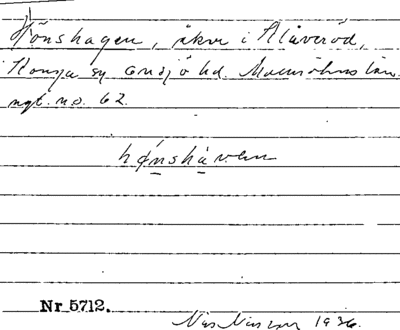 Hönshagen, åker i Klåveröd,
Konga sn Onsjö hd. Malmöhus län.
ngt. no. 62.
hǿnshāven
Nr 5712.
Nils Nilsson 1936.